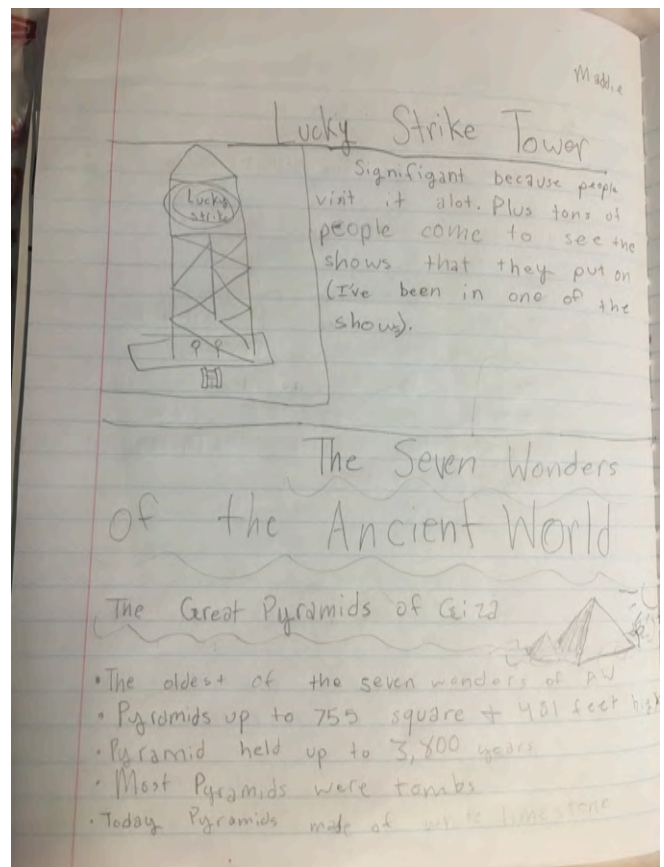 Maddie
Lucky Strike Tower
Lucky
Strike
Signifigant because people
visit it alot. Plus tons of
people come to see the
shows that they put on
(I've been in one of the
shows).
The Seven Wonders
of the Ancient World
The Great Pyramids of Giza
• The oldest of the seven wonders of AW
• Pyramids up to 755 square + 481 feet high
• Pyramid held up to 3,800 years
• Most Pyramids were tombs
• Today Pyramids made of white limestone